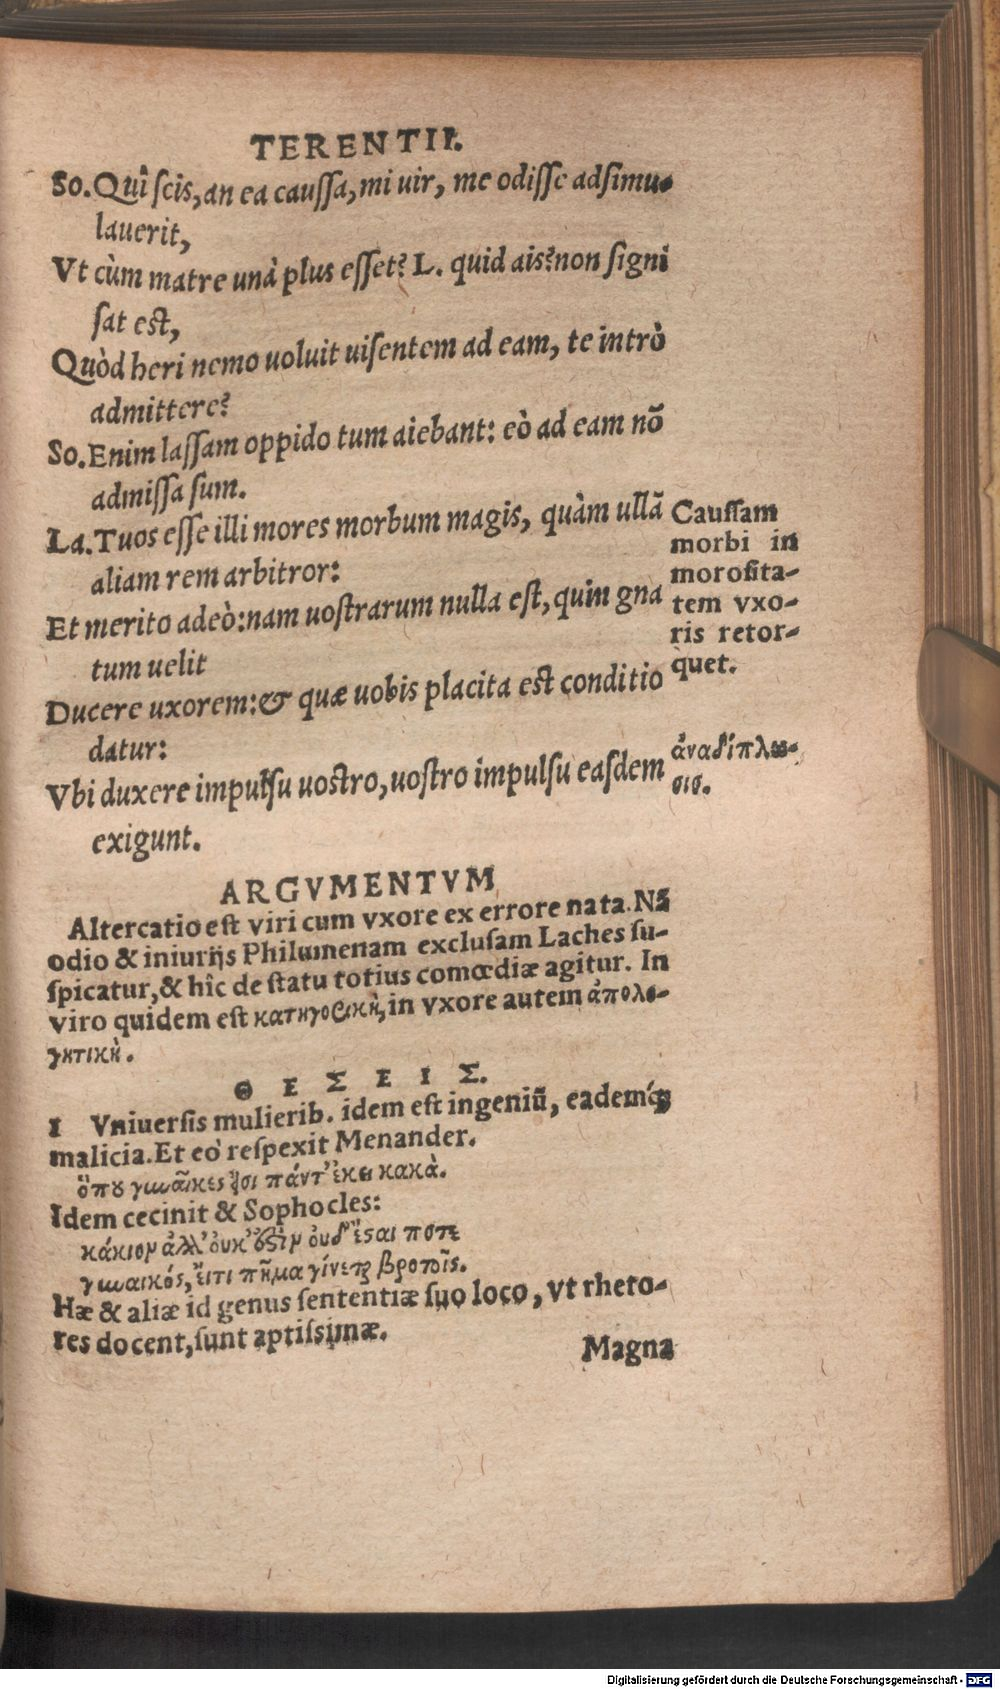 TERENTII.
So. Quî scis, an ea caussa, mi uir, me odisse adsimu-
lauerit,
Vt cùm matre unà plus esset? L. quid ais? non signi
sat est,
Quòd heri nemo uoluit uisentem ad eam, te intrò
admittere?
So. Enim lassam oppido tum aiebant: eò ad eam nõ
admissa sum.
La. Tuos esse illi mores morbum magis, quàm ullã
aliam rem arbitror:
Et merito adeò: nam uostrarum nulla est, quin gna
tum uelit
Ducere uxorem: & quæ uobis placita est conditio
datur:
Vbi duxere impulsu uostro, uostro impulsu easdem
exigunt.
Caussam
morbi in
morosita-
tem vxo-
ris retor-
quet.
ἀναδίπλω-
σισ.
ARGVMENTVM
Altercatio est viri cum vxore ex errore nata. Nã
odio & iniurijs Philumenam exclusam Laches su-
spicatur, & hîc de statu totius comœdiæ agitur. In
viro quidem est κατηγορικὴ, in vxore autem ἀπολο-
γητικὴ.
ΘΕΣΕΙΣ.
I Vniuersis mulierib. idem est ingeniũ, eademq́;
malicia. Et eò respexit Menander.
ὅπου γυναῖκες εἰσι πάντ' ἐκεῖ κακὰ.
Idem cecinit & Sophocles:
κάκιον ἀλλ' οὐκ ἔστιν οὐδ' ἔσαι ποτε
γυναικός, εἴτι πῆμα γίνεται βροτοῖς.
Hæ & aliæ id genus sententiæ suo loco, vt rheto-
res docent, sunt aptissimæ.
Magna
Digitalisierung gefördert durch die Deutsche Forschungsgemeinschaft - DFG